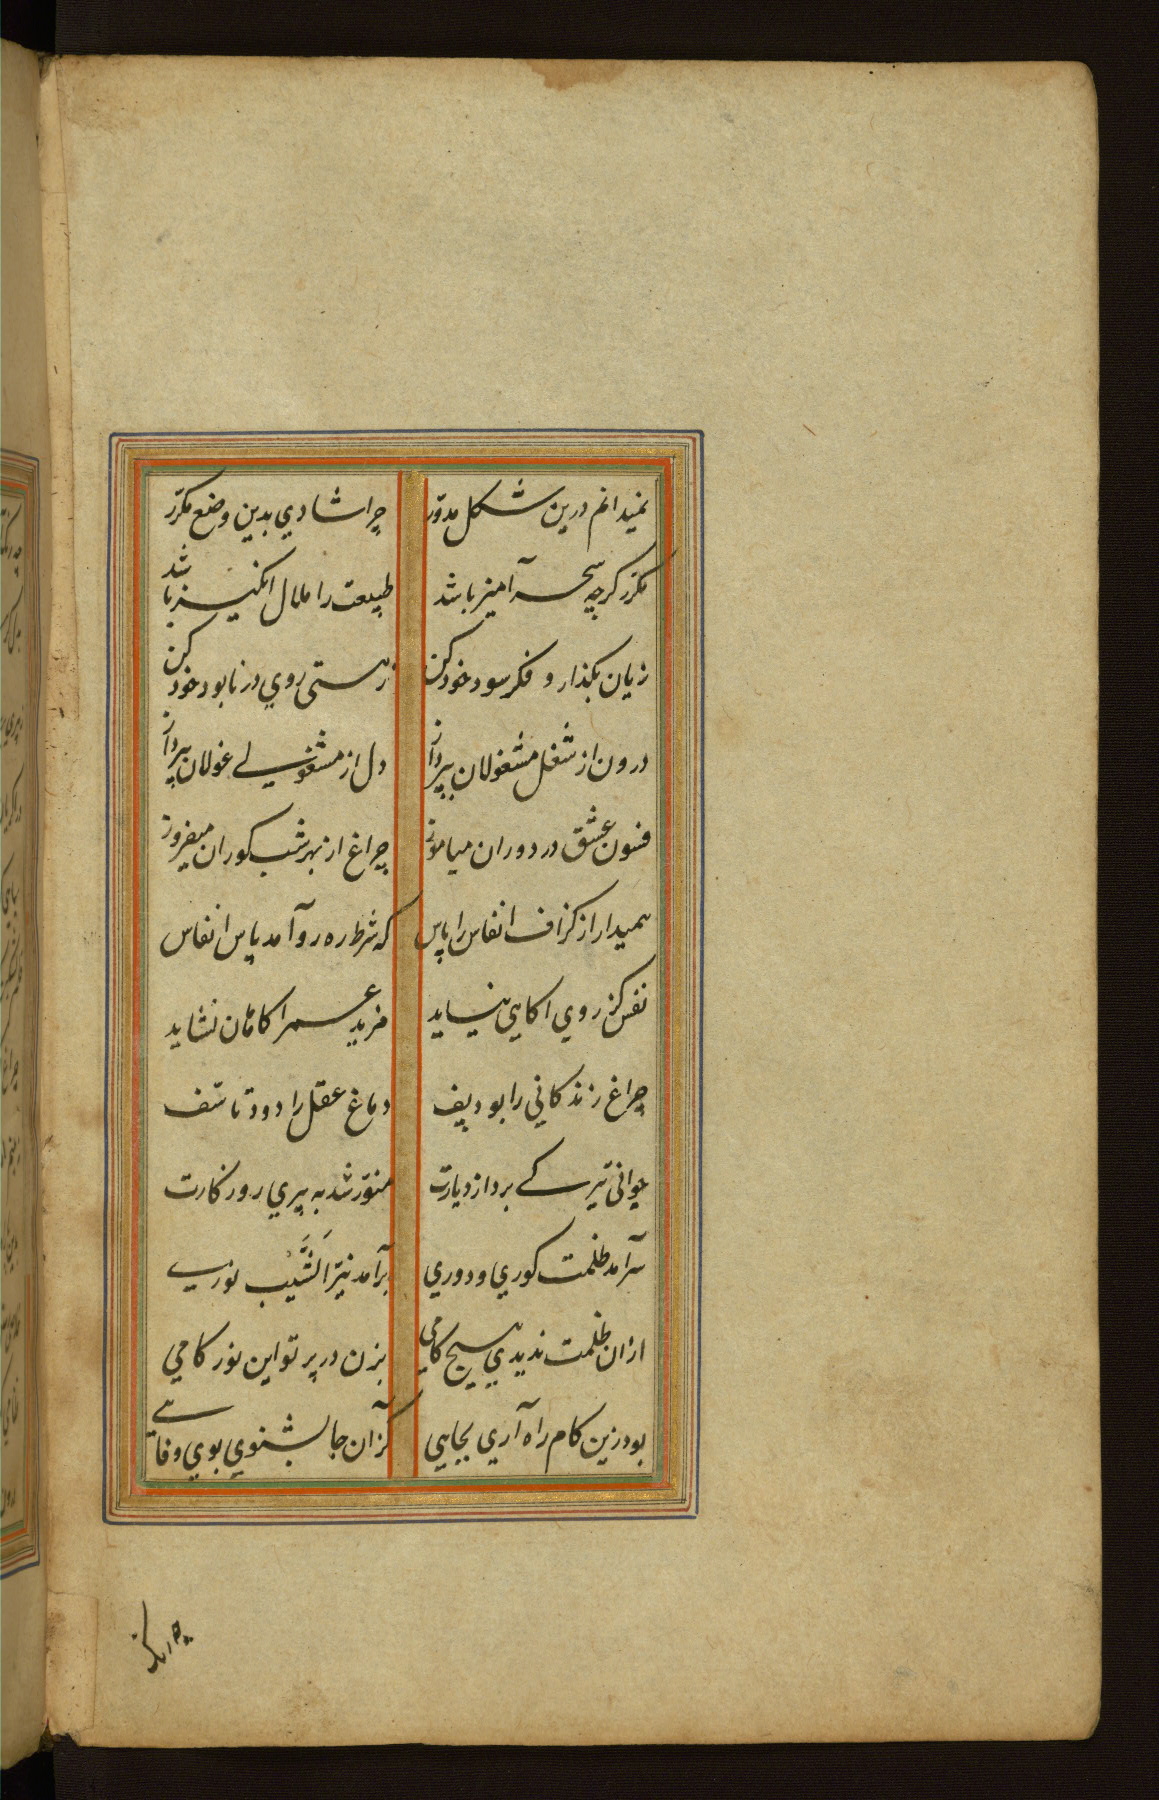 نمیدانم درین شکل مدوّر چرا شادي بدین وضع مکرّر
مکرر کرچه سحر آمیز باشد طبیعت را ملال انکیز باشد
زیان بکذار و فکر سود خود کن ز هستی روي در نابود خود کن
درون از شغل مشغولان بپرداز دل از مشغولے غولان بپرداز
فنون عشق در دوران میاموز چراغ از بهر شب کوران میفروز
همیدار از کزاف انفاس را پاس که شرط ره رو آمد پاس انفاس
نفس کز روي اکاهي نیاید مزید عمر اکاهان نشاید
چراغ زندکاني را بود پف دماغ عقل را دود تأسف
جوانی تیرکے برد از دیارت منوّر شد به پیري روزکارت
سرآمد ظلمت کوري و دوري برآمد نیّر اَلشَّیْب نوري
از ان ظلمت ندیدي هیچ کامی بزن در پرتو این نور کامي
بود زین کام راه آري بجاهي کز آن جا بشنوي بوي وفائے
چه رنکست